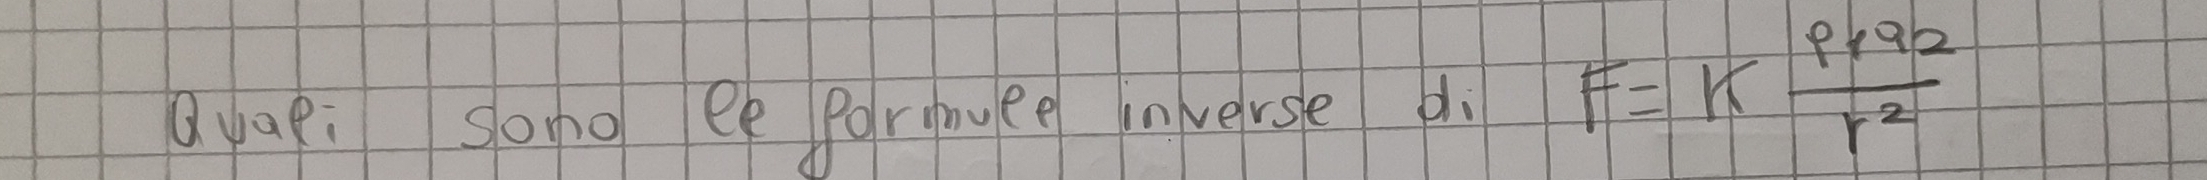 Quali sono le formule inverse di F = K \frac{q_1 q_2}{r^2}